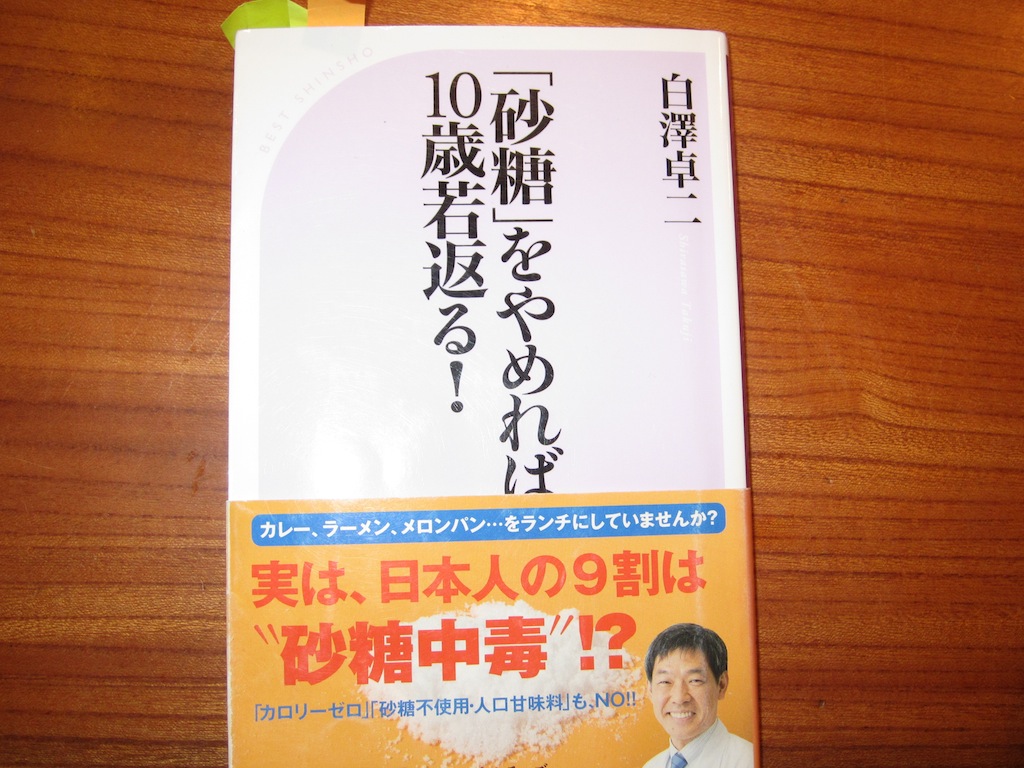 BEST SHINSHO
白澤卓二
Shirasawa Takuji
「砂糖」をやめれば
10歳若返る!
カレー、ラーメン、メロンパン…をランチにしていませんか?
実は、日本人の9割は
"砂糖中毒"!?
「カロリーゼロ」「砂糖不使用・人口甘味料」も、NO!!